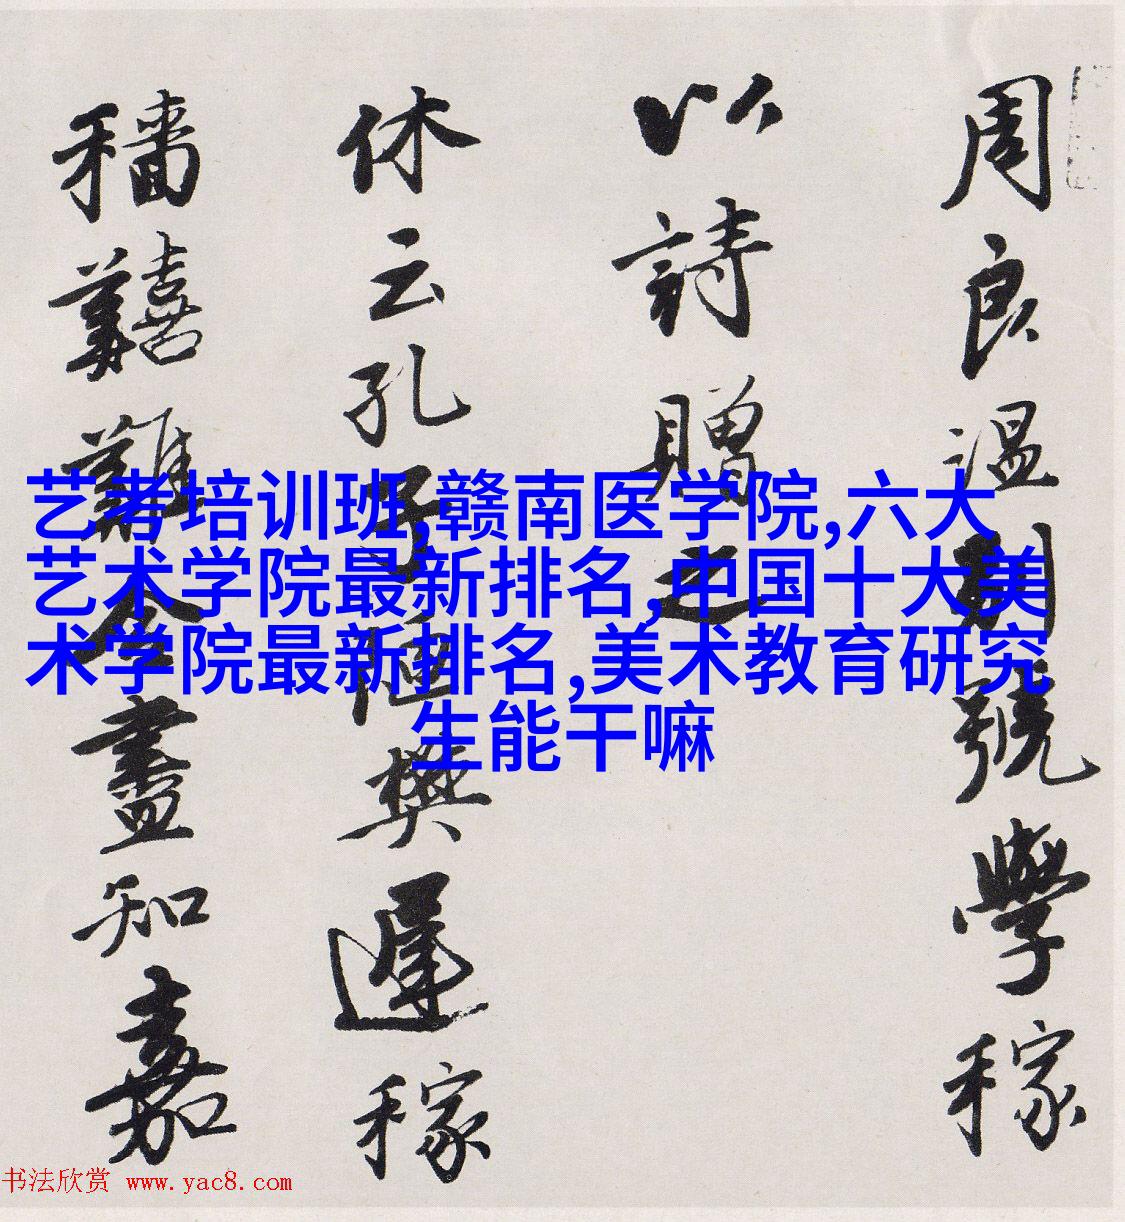 周良温別號學稼
以詩贈之
休云孔子陋樊遲稼
穡囏難盡知嘉
艺考培训班,赣南医学院,六大
艺术学院最新排名,中国十大美
术学院最新排名,美术教育研究
生能干嘛
书法欣赏 www.yac8.com